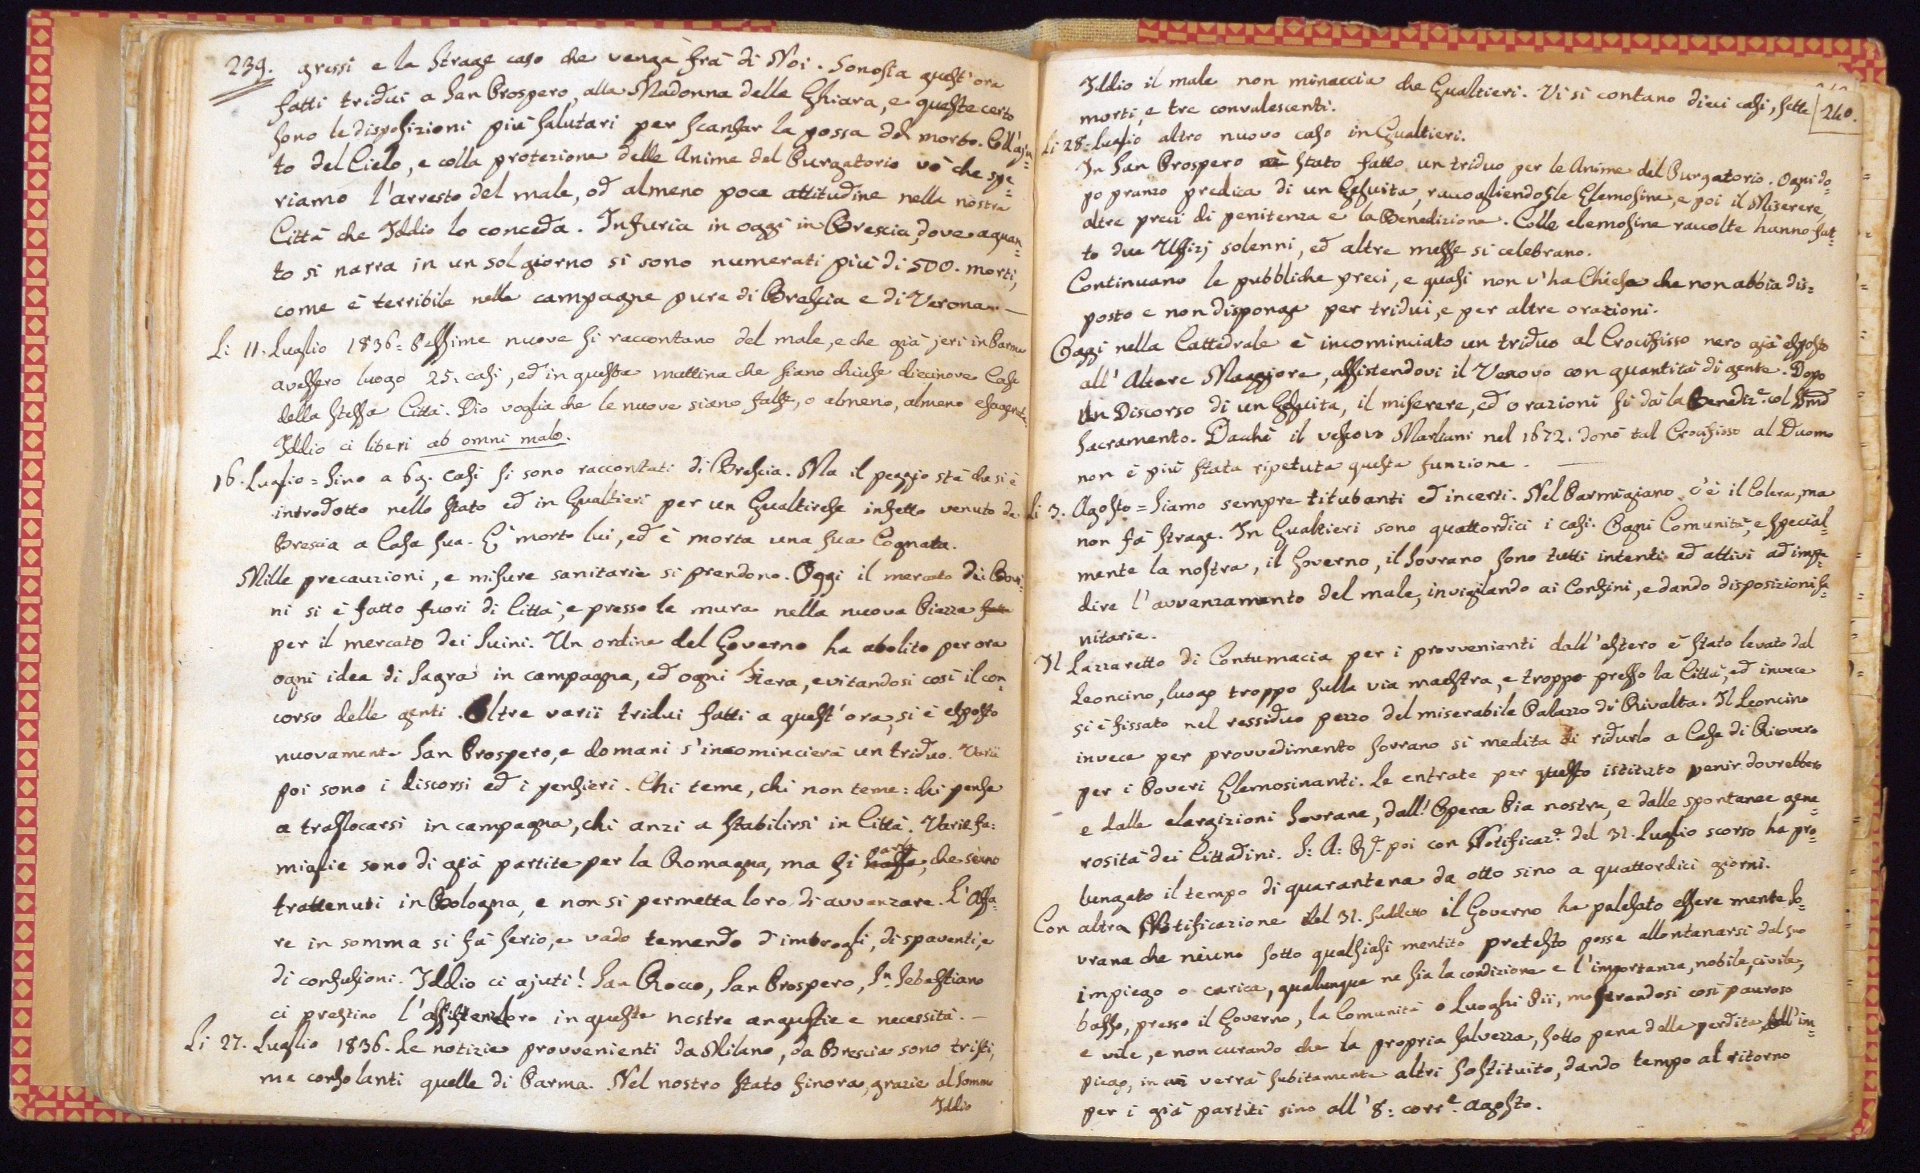 239.
gressi e la strage caso che venga frà di Noi. Sonosta quest'ora
fatti tridui a San Prospero, alla Madonna della Ghiara, e queste certo
sono le disposizioni più salutari per scansar la possa del morbo. Coll'aju=
to del Cielo, e colla protezione delle Anime del Purgatorio vò che spe=
riamo l'arresto del male, od almeno poca attitudine nella nostra
Città che Iddio lo conceda. Infuria in oggi in Brescia, dove a quan=
to si narra in un sol giorno si sono numerati più di 500. morti,
come è terribile nelle campagne pure di Brescia e di Verona. —
Li 11. Luglio 1836= Pessime nuove si raccontano del male, e che già jeri in Parma
avessero luogo 25. casi, ed in questa mattina che siano chiuse diecinove Case
della stessa Città. Dio voglia che le nuove siano false, o almeno, almeno esagerate.
Iddio ci liberi ab omni malo.
16. Luglio= Sino a 69. casi si sono raccontati di Brescia. Ma il peggio stà che si è
introdotto nello stato ed in Gualtieri per un Gualtirese infetto venuto da
Brescia a Casa sua. E' morto lui, ed è morta una sua Cognata.
Mille precauzioni, e misure sanitarie si prendono. Oggi il mercato dei Bovi=
ni si è fatto fuori di Città, e presso le mura nella nuova Piazza fatta
per il mercato dei Suini. Un ordine del Governo ha abolito per ora
ogni idea di Sagra in campagna, ed ogni Fiera, evitandosi così il con=
corso delle genti. Oltre varii tridui fatti a quest'ora, si è esposto
nuovamente San Prospero, e domani s'incomincierà un triduo. Varii
poi sono i discorsi ed i pensieri. Chi teme, chi non teme: chi pensa
a traslocarsi in campagna, chi anzi a stabilirsi in Città. Varie fa=
miglie sono di già partite per la Romagna, ma si parla, che sieno
trattenuti in Bologna, e non si permetta loro di avvanzare. L'Affa=
re in somma si fà serio, e vado temendo d'imbrogli, di spaventi, e
di confusioni. Iddio ci ajuti! San Rocco, San Prospero, Sn. Sebastiano
ci prestino l'assistenza loro in queste nostre angustie e necessità. —
Li 27. Luglio 1836. Le notizie provvenienti da Milano, da Brescia sono tristi,
ma consolanti quelle di Parma. Nel nostro stato finora, grazie al sommo
Iddio
240.
Iddio il male non minaccia che Gualtieri. Vi si contano dieci casi, sette
morti, e tre convalescenti.
Li 28. Luglio altro nuovo caso in Gualtieri.
In San Prospero è stato fatto un triduo per le Anime del Purgatorio. Ogni do=
po pranzo predica di un Gesuita, raccogliendosi le Elemosine, e poi il Miserere,
altre preci di penitenza e la Benedizione. Colle elemosine raccolte hanno fat=
to due Uffizj solenni, ed altre messe si celebrano.
Continuano le pubbliche preci, e quasi non v'ha Chiesa che non abbia dis=
posto e non disponga per tridui, e per altre orazioni.
Oggi nella Cattedrale è incominciato un triduo al Crocifisso nero già esposto
all'Altare Maggiore, assistendovi il Vescovo con quantità di gente. Dopo
un Discorso di un Gesuita, il miserere, ed orazioni si dà la Benedize. col SSmo
Sacramento. Dacchè il vescovo Marliani nel 1672. donò tal Crocifisso al Duomo
non è più stata ripetuta questa funzione. —
Li 3. Agosto= Siamo sempre titubanti ed incerti. Nel Parmigiano c'è il Colera, ma
non fà strage. In Gualtieri sono quattordici i casi. Ogni Comunità, e special=
mente la nostra, il Governo, il Sovrano sono tutti intenti ed attivi ad impe=
dire l'avvanzamento del male, invigilando ai Confini, e dando disposizioni sa=
nitarie.
Il Lazzaretto di Contumacia per i provvenienti dall'estero è stato levato dal
Leoncino, luogo troppo sulla via maestra, e troppo presso la Città, ed invece
si è fissato nel ressiduo pezzo del miserabile Palazzo di Rivalta. Il Leoncino
invece per provvedimento sovrano si medita di ridurlo a Casa di Ricovero
per i Poveri Elemosinanti. Le entrate per questo istituto venir dovrebbero
e dalle elargizioni Sovrane, dall'Opera Pia nostra, e dalle spontanee gene=
rosità dei Cittadini. S: A: Re. poi con Notificaze. del 31. Luglio scorso ha pro=
lungato il tempo di quarantena da otto sino a quattordici giorni.
Con altra Notificazione del 31. suddetto il Governo ha palesato essere mente So=
vrana che neiuno sotto qualsiasi mentito pretesto possa allontanarsi dal suo
impiego o carica, qualunque ne sia la condizione e l'importanza, nobile, civile,
basso, presso il Governo, la Comunità o Luoghi Pii, mostrandosi così pauroso
e vile, e non curando che la propria salvezza, sotto pena della perdita dell'im=
piego, in cui verrà subitamente altri sostituito, dando tempo al ritorno
per i già partiti sino all'8: corre. Agosto.